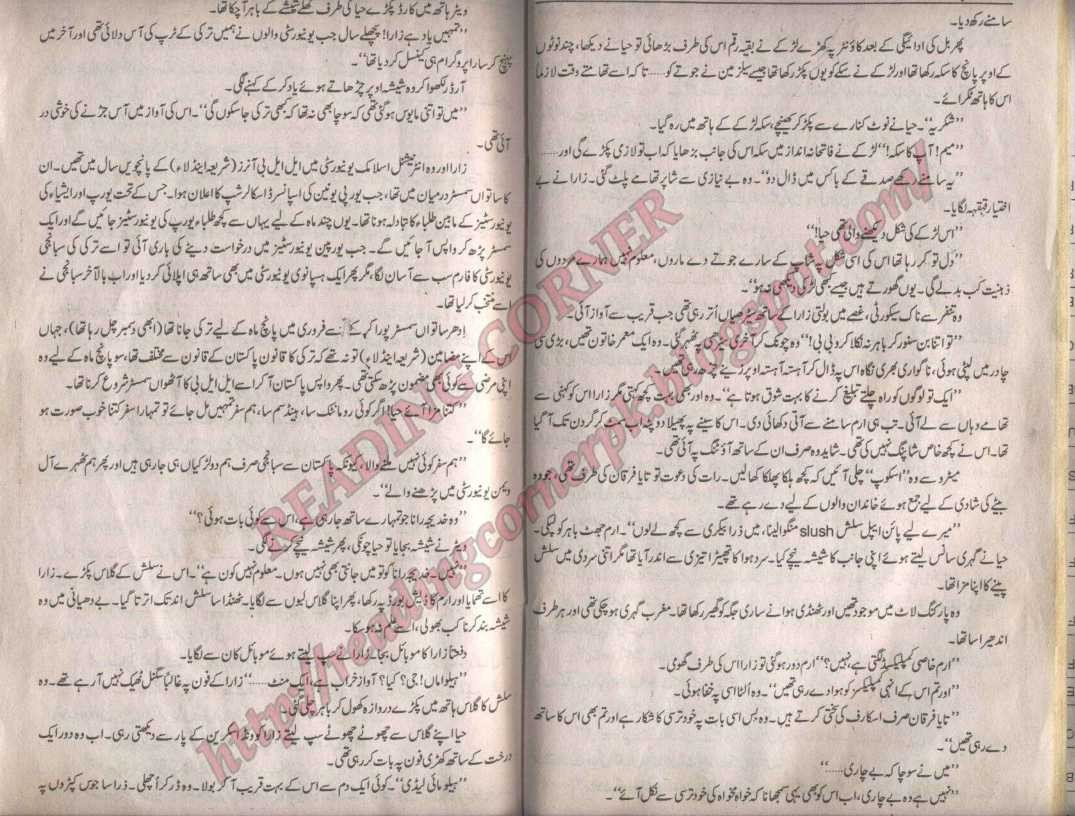 سامنے رکھ دیا۔
پھر بل کی ادائیگی کے بعد کاؤنٹر پہ کھڑے لڑکے نے بقیہ رقم اس کی طرف بڑھائی تو حیا نے دیکھا، چند نوٹوں
کے اوپر پانچ کا سکہ رکھا تھا اور لڑکے نے سکے کو یوں پکڑ رکھا تھا جیسے سیلز مین نے جوتے کو...... تاکہ اسے تھامتے وقت لازما
اس کا ہاتھ ٹکرائے۔
”شکریہ“۔ حیا نے نوٹ کنارے سے پکڑ کر کھینچے، سکہ لڑکے کے ہاتھ میں رہ گیا۔
”میم! آپ کا سکہ!“ لڑکے نے فاتحانہ انداز میں سکہ اس کی جانب بڑھایا کہ اب تو لازی پکڑے گی اور......
”یہ سامنے رکھے صدقے کے باکس میں ڈال دو“۔ وہ بے نیازی سے شاپر تھامے پلٹ گئی۔ زارا نے بے
اختیار قہقہہ لگایا۔
”اس لڑکے کی شکل دیکھنے والی تھی حیا!“
”دل تو کر رہا تھا اس کی اسی شکل پہ شاپ کے سارے جوتے دے ماروں، معلوم نہیں ہمارے مردوں کی
ذہنیت کب بدلے گی۔ یوں گھورتے ہیں جیسے کبھی لڑکی دیکھی نہ ہو“۔
وہ تنفر سے ناک سکوڑتی، غصے میں بولتی زارا کے ساتھ سیڑھیاں اتر رہی تھی جب قریب سے آواز آئی۔
”تو اتنا بن سنور کر باہر نہ نکلا کرو بی بی!“ وہ چونک کر آخری سیڑھی پہ ٹھہر گئی۔ وہ ایک معمر خاتون تھیں، بڑی سی
چادر میں لپٹی ہوئی، ناگواری بھری نگاہ اس پہ ڈال کر آہستہ آہستہ اوپر زینے چڑھ رہی تھیں۔
”ایک تو لوگوں کو راہ چلتے تبلیغ کرنے کا بہت شوق ہوتا ہے“۔ وہ اور بھی بہت کچھ کہتی مگر زارا اس کو کہنی سے
تھامے وہاں سے لے آئی۔ تب ہی ارم سامنے سے آتی دکھائی دی۔ اس کا سینے پہ پھیلا دوپٹہ اب سمٹ کر گردن تک آ گیا
تھا۔ اس نے کچھ خاص شاپنگ نہیں کی تھی۔ شاید وہ صرف ان کے ساتھ آؤٹنگ پہ آئی تھی۔
میٹرو سے وہ ”اسکوپ“ چلی آئیں کہ کچھ ہلکا پھلکا کھالیں۔ رات کی دعوت تو تایا فرقان کی طرف تھی، جو وہ
بیٹے کی شادی کے لیے جمع ہوئے خاندان والوں کے لیے دے رہے تھے۔
”میرے لیے پائن ایپل سلش slush منگوالینا، میں ذرا بیکری سے کچھ لے لوں“۔ ارم جھٹ باہر کو لپکی۔
حیا نے گہری سانس لیتے ہوئے اپنی جانب کا شیشہ نیچے کیا۔ سرد ہوا کا تھپیڑا تیزی سے اندر آیا تھا مگر اتنی سردی میں سلش
پینے کا اپنا مزا تھا۔
وہ پارکنگ لاٹ میں موجود تھیں اور ٹھنڈی ہوا نے ساری جگہ کو گھیر رکھا تھا۔ مغرب گہری ہو چکی تھی اور ہر طرف
اندھیرا سا تھا۔
”ارم خاصی کمپلیکسڈ لگتی ہے نہیں؟“ ارم دور ہو گئی تو زارا اس کی طرف گھومی۔
”اور تم اس کے انہی کمپلیکسز کو ہوا دے رہی تھیں“۔ وہ الٹا اسی پہ خفا ہوئی۔
”تایا فرقان صرف اسکارف کی سختی کرتے ہیں۔ وہ بس اسی بات پہ خودترسی کا شکار ہے اور تم بھی اس کا ساتھ
دے رہی تھیں“۔
”میں نے سوچا کہ بے چاری......“
”نہیں ہے وہ بے چاری، اب اس کو بھی یہی سمجھانا کہ خواہ مخواہ کی خودترسی سے نکل آئے“۔
ویٹر ہاتھ میں کارڈ پکڑے حیا کی طرف کھلے شیشے کے باہر آچکا تھا۔
”تمہیں یاد ہے زارا! پچھلے سال جب یونیورسٹی والوں نے ہمیں ترکی کے ٹرپ کی آس دلائی تھی اور آخر میں
پہنچ کر سارا پروگرام ہی کینسل کر دیا تھا“۔
آرڈر لکھوا کر وہ شیشہ اوپر چڑھاتے ہوئے یاد کر کے کہنے لگی۔
”میں تو اتنی مایوس ہو گئی تھی کہ سوچا بھی نہ تھا کہ کبھی ترکی جا سکوں گی“۔ اس کی آواز میں آس جڑنے کی خوشی در
آئی تھی۔
زارا اور وہ انٹرنیشنل اسلامک یونیورسٹی میں ایل ایل بی آنرز (شریعہ اینڈ لاء) کے پانچویں سال میں تھیں۔ ان
کا ساتواں سمسٹر درمیان میں تھا، جب یورپی یونین کی اسپانسرڈ اسکالرشپ کا اعلان ہوا۔ جس کے تحت یورپ اور ایشیاء کی
یونیورسٹیز کے مابین طلباء کا تبادلہ ہونا تھا۔ یوں چند ماہ کے لیے یہاں سے کچھ طلباء یورپ کی یونیورسٹیز جائیں گے اور ایک
سمسٹر پڑھ کر واپس آ جائیں گے۔ جب یورپین یونیورسٹیز میں درخواست دینے کی باری آئی تو اسے ترکی کی سبانجی
یونیورسٹی کا فارم سب سے آسان لگا، مگر پھر ایک ہسپانوی یونیورسٹی میں بھی ساتھ ہی اپلائی کر دیا اور اب بالآخر سبانجی نے
اسے منتخب کر لیا تھا۔
ادھر ساتواں سمسٹر پورا کر کے اسے فروری میں پانچ ماہ کے لیے ترکی جانا تھا (ابھی دسمبر چل رہا تھا)، جہاں
اس کے اپنے مضامین (شریعہ اینڈ لاء) تو نہ تھے کہ ترکی کا قانون پاکستان کے قانون سے مختلف تھا، سو پانچ ماہ کے لیے وہ
اپنی مرضی سے کوئی بھی مضمون پڑھ سکتی تھی۔ پھر واپس پاکستان آ کر اسے ایل ایل بی کا آٹھواں سمسٹر شروع کرنا تھا۔
”کتنا مزا آئے حیا! اگر کوئی رومانٹک سا، ہینڈسم سا، ہم سفر تمہیں مل جائے تو تمہارا سفر کتنا خوب صورت ہو
جائے گا“۔
”ہم سفر کوئی نہیں ملنے والا، کیونکہ پاکستان سے سبانجی صرف ہم دو لڑکیاں ہی جا رہی ہیں اور پھر ہم ٹھہرے آل
ویمن یونیورسٹی میں پڑھنے والے“۔
”وہ خدیجہ رانا جو تمہارے ساتھ جا رہی ہے، اس سے کوئی بات ہوئی؟“
ویٹر نے شیشہ بجایا تو حیا چونکی، پھر شیشہ نیچے کرنے لگی۔
”نہیں۔ خدیجہ رانا کو تو میں جانتی بھی نہیں ہوں۔ معلوم نہیں کون ہے“۔ اس نے سلش کے گلاس پکڑے۔ زارا
کا اسے تھمایا اور ارم کا ڈیش بورڈ پہ رکھا، پھر اپنا گلاس لبوں سے لگایا۔ ٹھنڈا سا سلش اندر تک اترتا گیا۔ بے دھیانی میں وہ
شیشہ بند کرنا کب بھولی، اسے علم نہ ہو سکا۔
دفعتا زارا کا موبائل بجا۔ زارا نے سپ لیتے ہوئے موبائل کان سے لگایا۔
”ہیلو اماں! جی؟ کیا؟ آواز خراب ہے، ایک منٹ......“ زارا کے فون پہ غالبا سگنل ٹھیک نہیں آ رہے تھے۔ وہ
سلش کا گلاس ہاتھ میں پکڑے دروازہ کھول کر باہر نکل گئی۔
حیا اپنے گلاس سے چھوٹے چھوٹے سپ لیتے زارا کو ونڈ اسکرین کے پار سے دیکھتی رہی۔ اب وہ دور ایک
درخت کے ساتھ کھڑی فون پہ بات کر رہی تھی۔
”ہیلو مائی لیڈی“۔ کوئی ایک دم سے اس کے بہت قریب آ کر بولا۔ وہ ڈر کر اچھلی۔ ذرا سا جوس کپڑوں پہ
READING CORNER
http://readingcornerpk.blogspot.com/